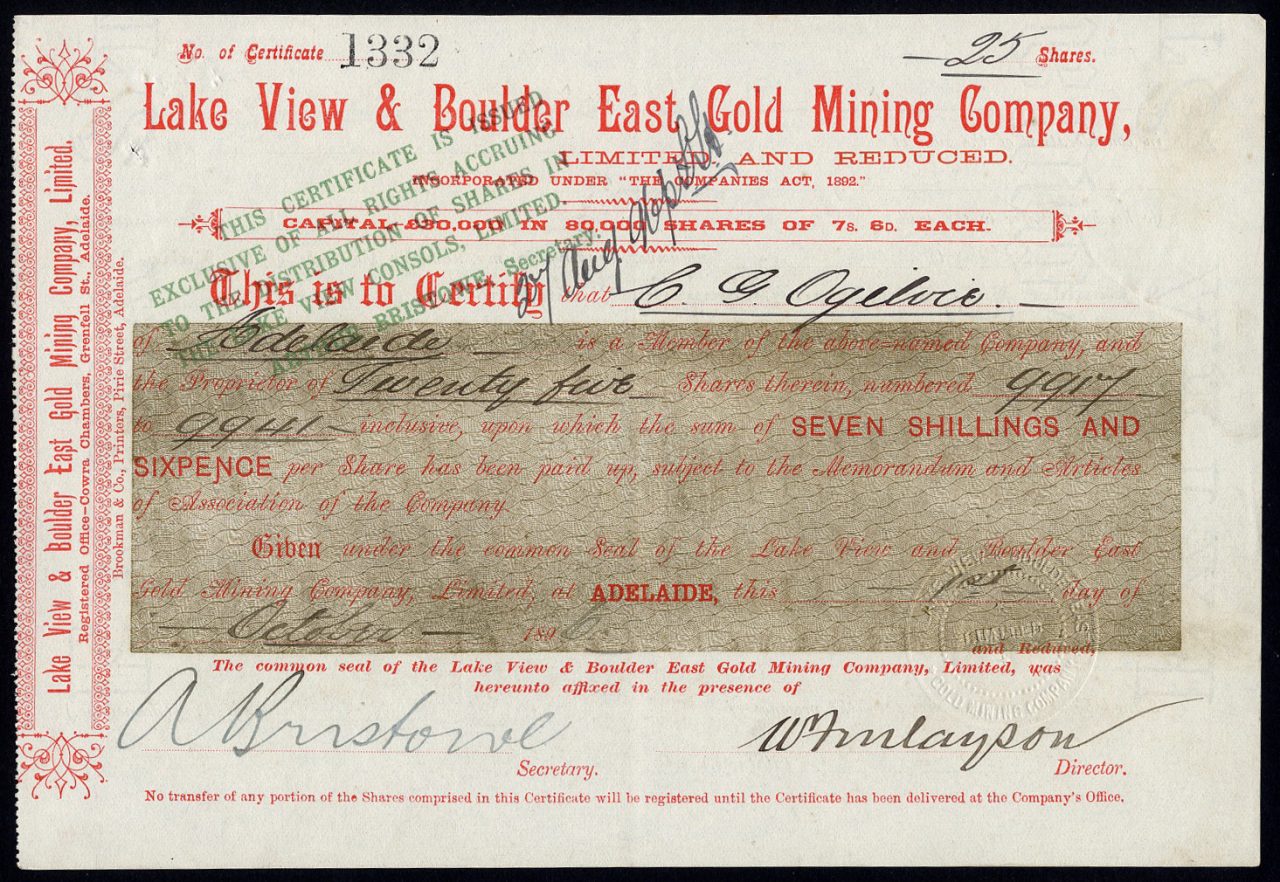 No. of Certificate 1332
25 Shares.
Lake View & Boulder East Gold Mining Company,
LIMITED AND REDUCED.
INCORPORATED UNDER "THE COMPANIES ACT, 1892."
CAPITAL £30,000 IN 80,000 SHARES OF 7S. 6D. EACH.
THIS CERTIFICATE IS ISSUED
EXCLUSIVE OF ALL RIGHTS ACCRUING
TO THE DISTRIBUTION OF SHARES IN
THE LAKE VIEW CONSOLS, LIMITED.
BRISTOWE, Secretary.
27 Aug
This is to Certify that C. G Ogilvie.
of Adelaide is a Member of the above-named Company, and
the Proprietor of Twenty five Shares therein, numbered 9917
to 9941 inclusive, upon which the sum of SEVEN SHILLINGS AND
SIXPENCE per Share has been paid up, subject to the Memorandum and Articles
of Association of the Company.
Given under the common Seal of the Lake View and Boulder East
Gold Mining Company, Limited, at ADELAIDE, this 1st day of
October 1896
and Reduced,
The common seal of the Lake View & Boulder East Gold Mining Company, Limited, was
hereunto affixed in the presence of
A Bristowe
Secretary.
W Finlayson
Director.
No transfer of any portion of the Shares comprised in this Certificate will be registered until the Certificate has been delivered at the Company's Office.
Lake View & Boulder East Gold Mining Company, Limited.
Registered Office-Cowra Chambers, Grenfell St., Adelaide.
Brookman & Co., Printers, Pirie Street, Adelaide.
GOLD MINING COMPANY